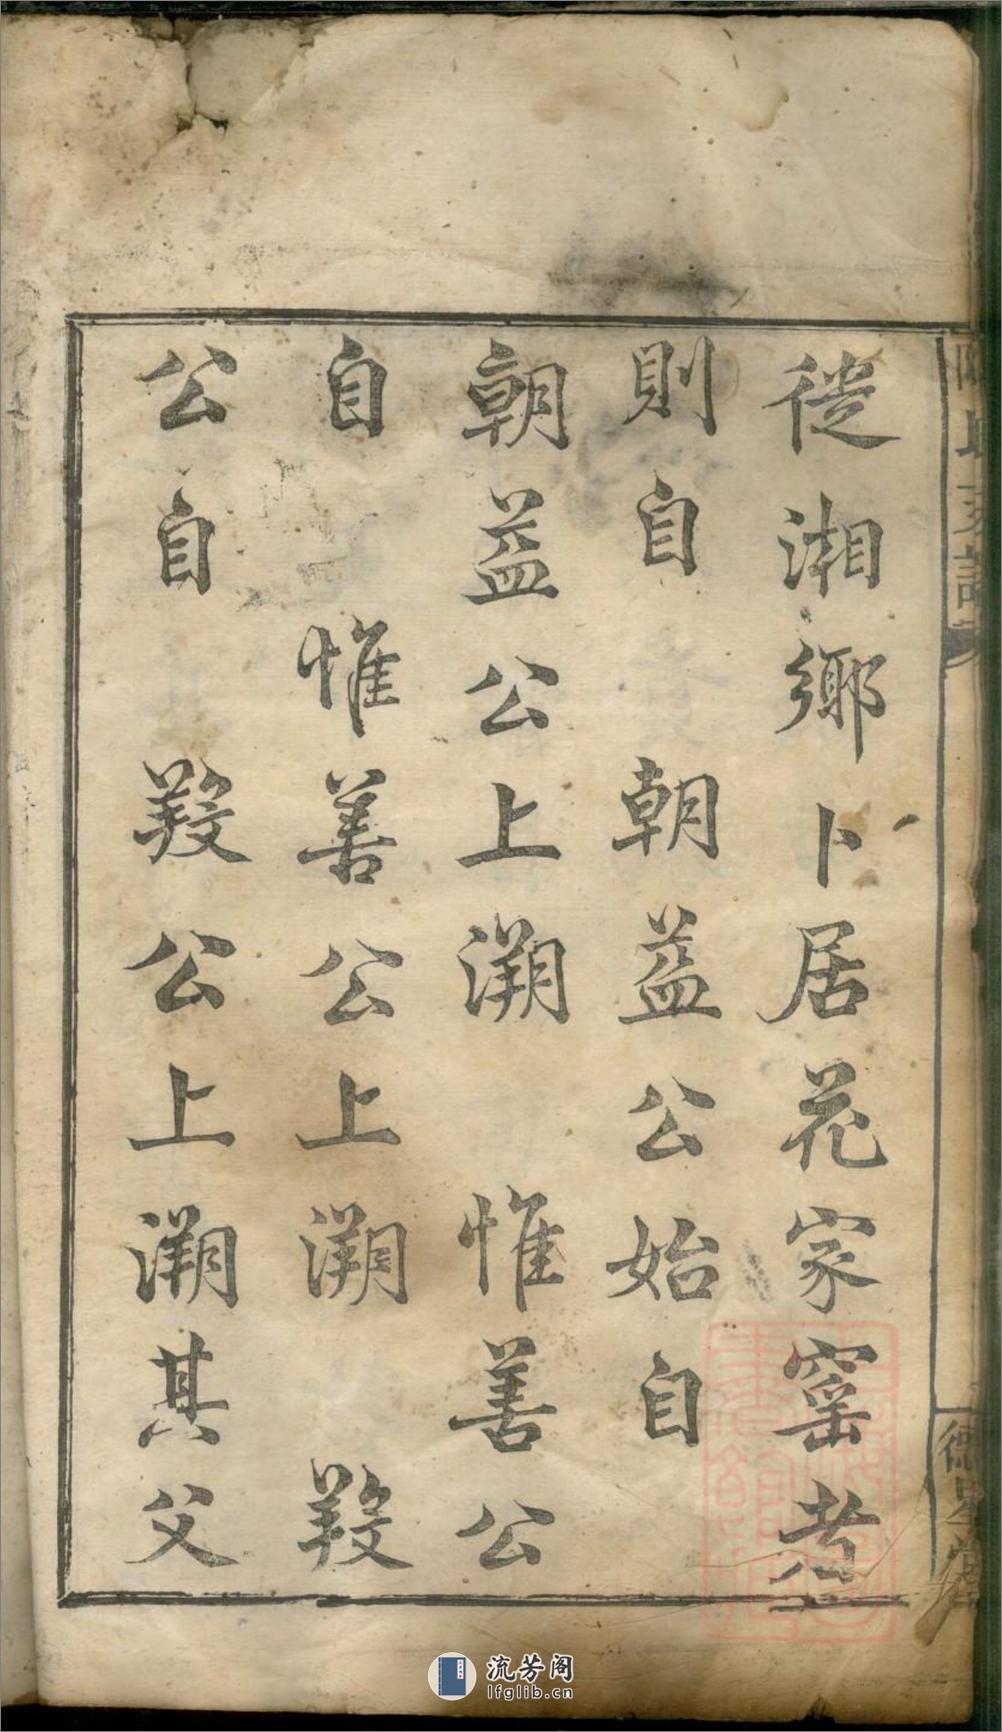 徙湘鄉卜居花家窰考
則自 朝益公始自
朝益公上溯 惟善公
自 惟善公上溯 羖
公自 羖公上溯其父
支譜
德星堂
流芳阁
lfglib.cn